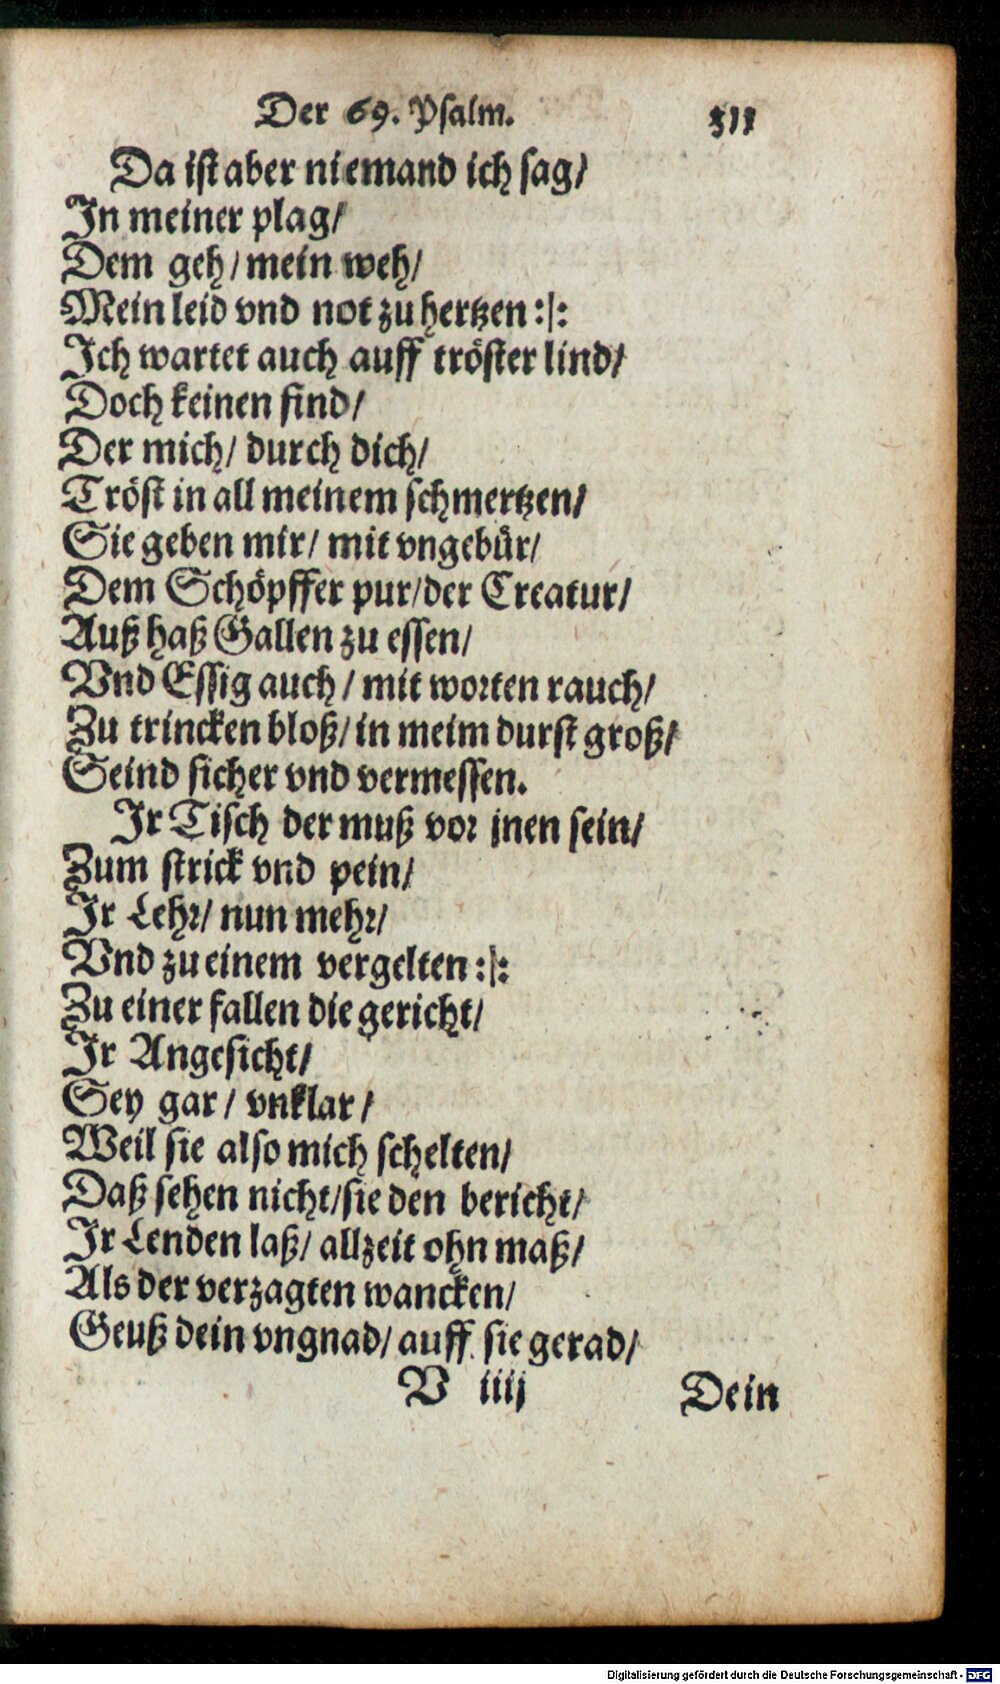 Der 69. Psalm. 311
Da ist aber niemand ich sag/
In meiner plag/
Dem geh/ mein weh/
Mein leid vnd not zu hertzen :|:
Ich wartet auch auff tröster lind/
Doch keinen find/
Der mich/ durch dich/
Tröst in all meinem schmertzen/
Sie geben mir/ mit vngebür/
Dem Schöpffer pur/ der Creatur/
Auß haß Gallen zu essen/
Vnd Essig auch/ mit worten rauch/
Zu trincken bloß/ in meim durst groß/
Seind sicher vnd vermessen.
Ir Tisch der muß vor jnen sein/
Zum strick vnd pein/
Ir Lehr/ nun mehr/
Vnd zu einem vergelten :|:
Zu einer fallen die gericht/
Ir Angesicht/
Sey gar/ vnklar/
Weil sie also mich schelten/
Daß sehen nicht/ sie den bericht/
Ir Lenden laß/ allzeit ohn maß/
Als der verzagten wancken/
Geuß dein vngnad/ auff sie gerad/
V iiij Dein
Digitalisierung gefördert durch die Deutsche Forschungsgemeinschaft - DFG